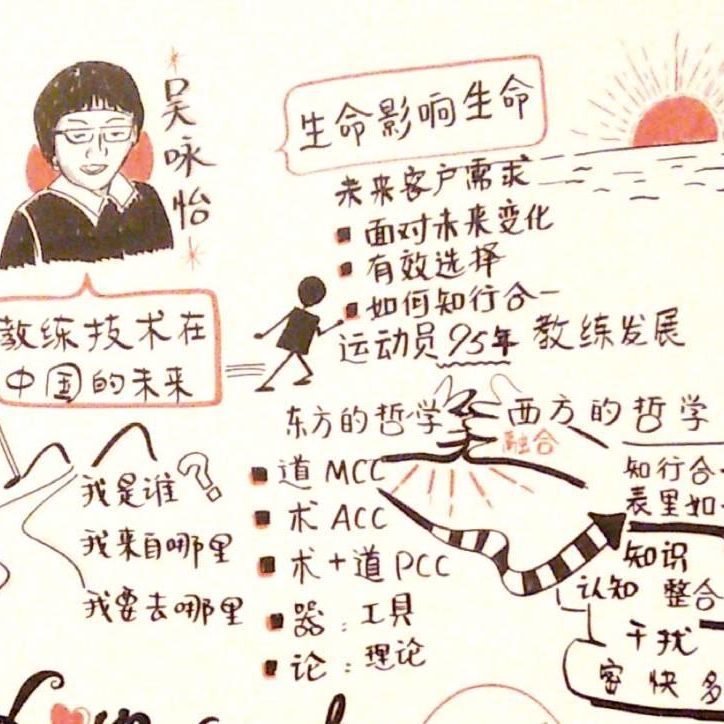 吴咏怡
教练技术在
中国的未来
生命影响生命
未来客户需求
面对未来变化
有效选择
如何知行合一
运动员95年 教练发展
东方的哲学
西方的哲学
融合
道 MCC
术 ACC
术+道 PCC
器:工具
论:理论
我是谁?
我来自哪里
我要去哪里
知行合一
表里如一
知识
认知 整合
干扰
快 多